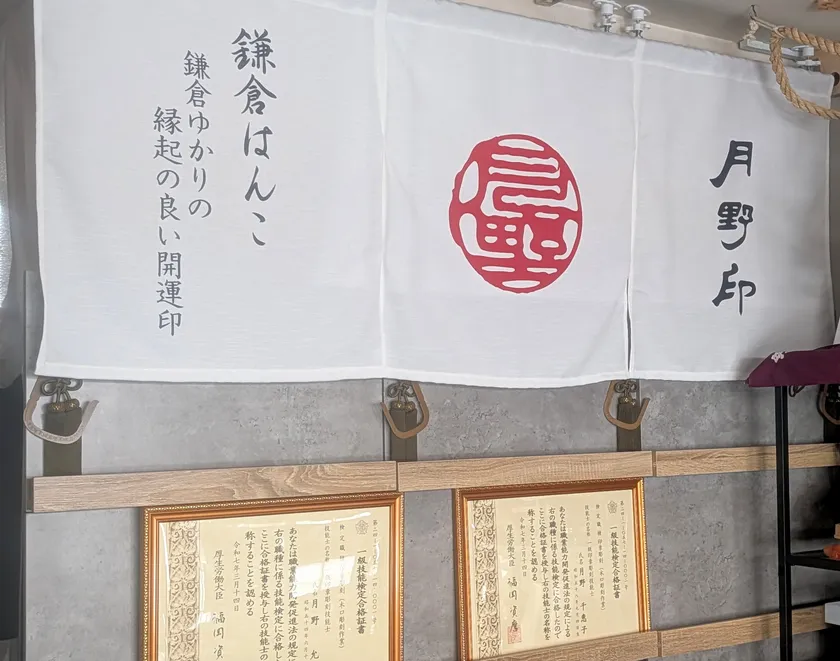 月野印
月野
鎌倉はんこ
鎌倉ゆかりの
縁起の良い開運印
一級技能検定合格証書
氏名 月野 千恵子
あなたは職業能力開発促進法の規定による
右の職種に係る技能検定に合格したので
ここに合格証書を授与し右の技能士の名称を
称することを認める
令和七年三月十四日
厚生労働大臣 福岡資麿
一級技能検定合格証書
月野 允
あなたは職業能力開発促進法の規定
右の職種に係る技能検定に合格し
ここに合格証書を授与し右の技能士の
称することを認める
令和七年三月十四日
厚生労働大臣 福岡資